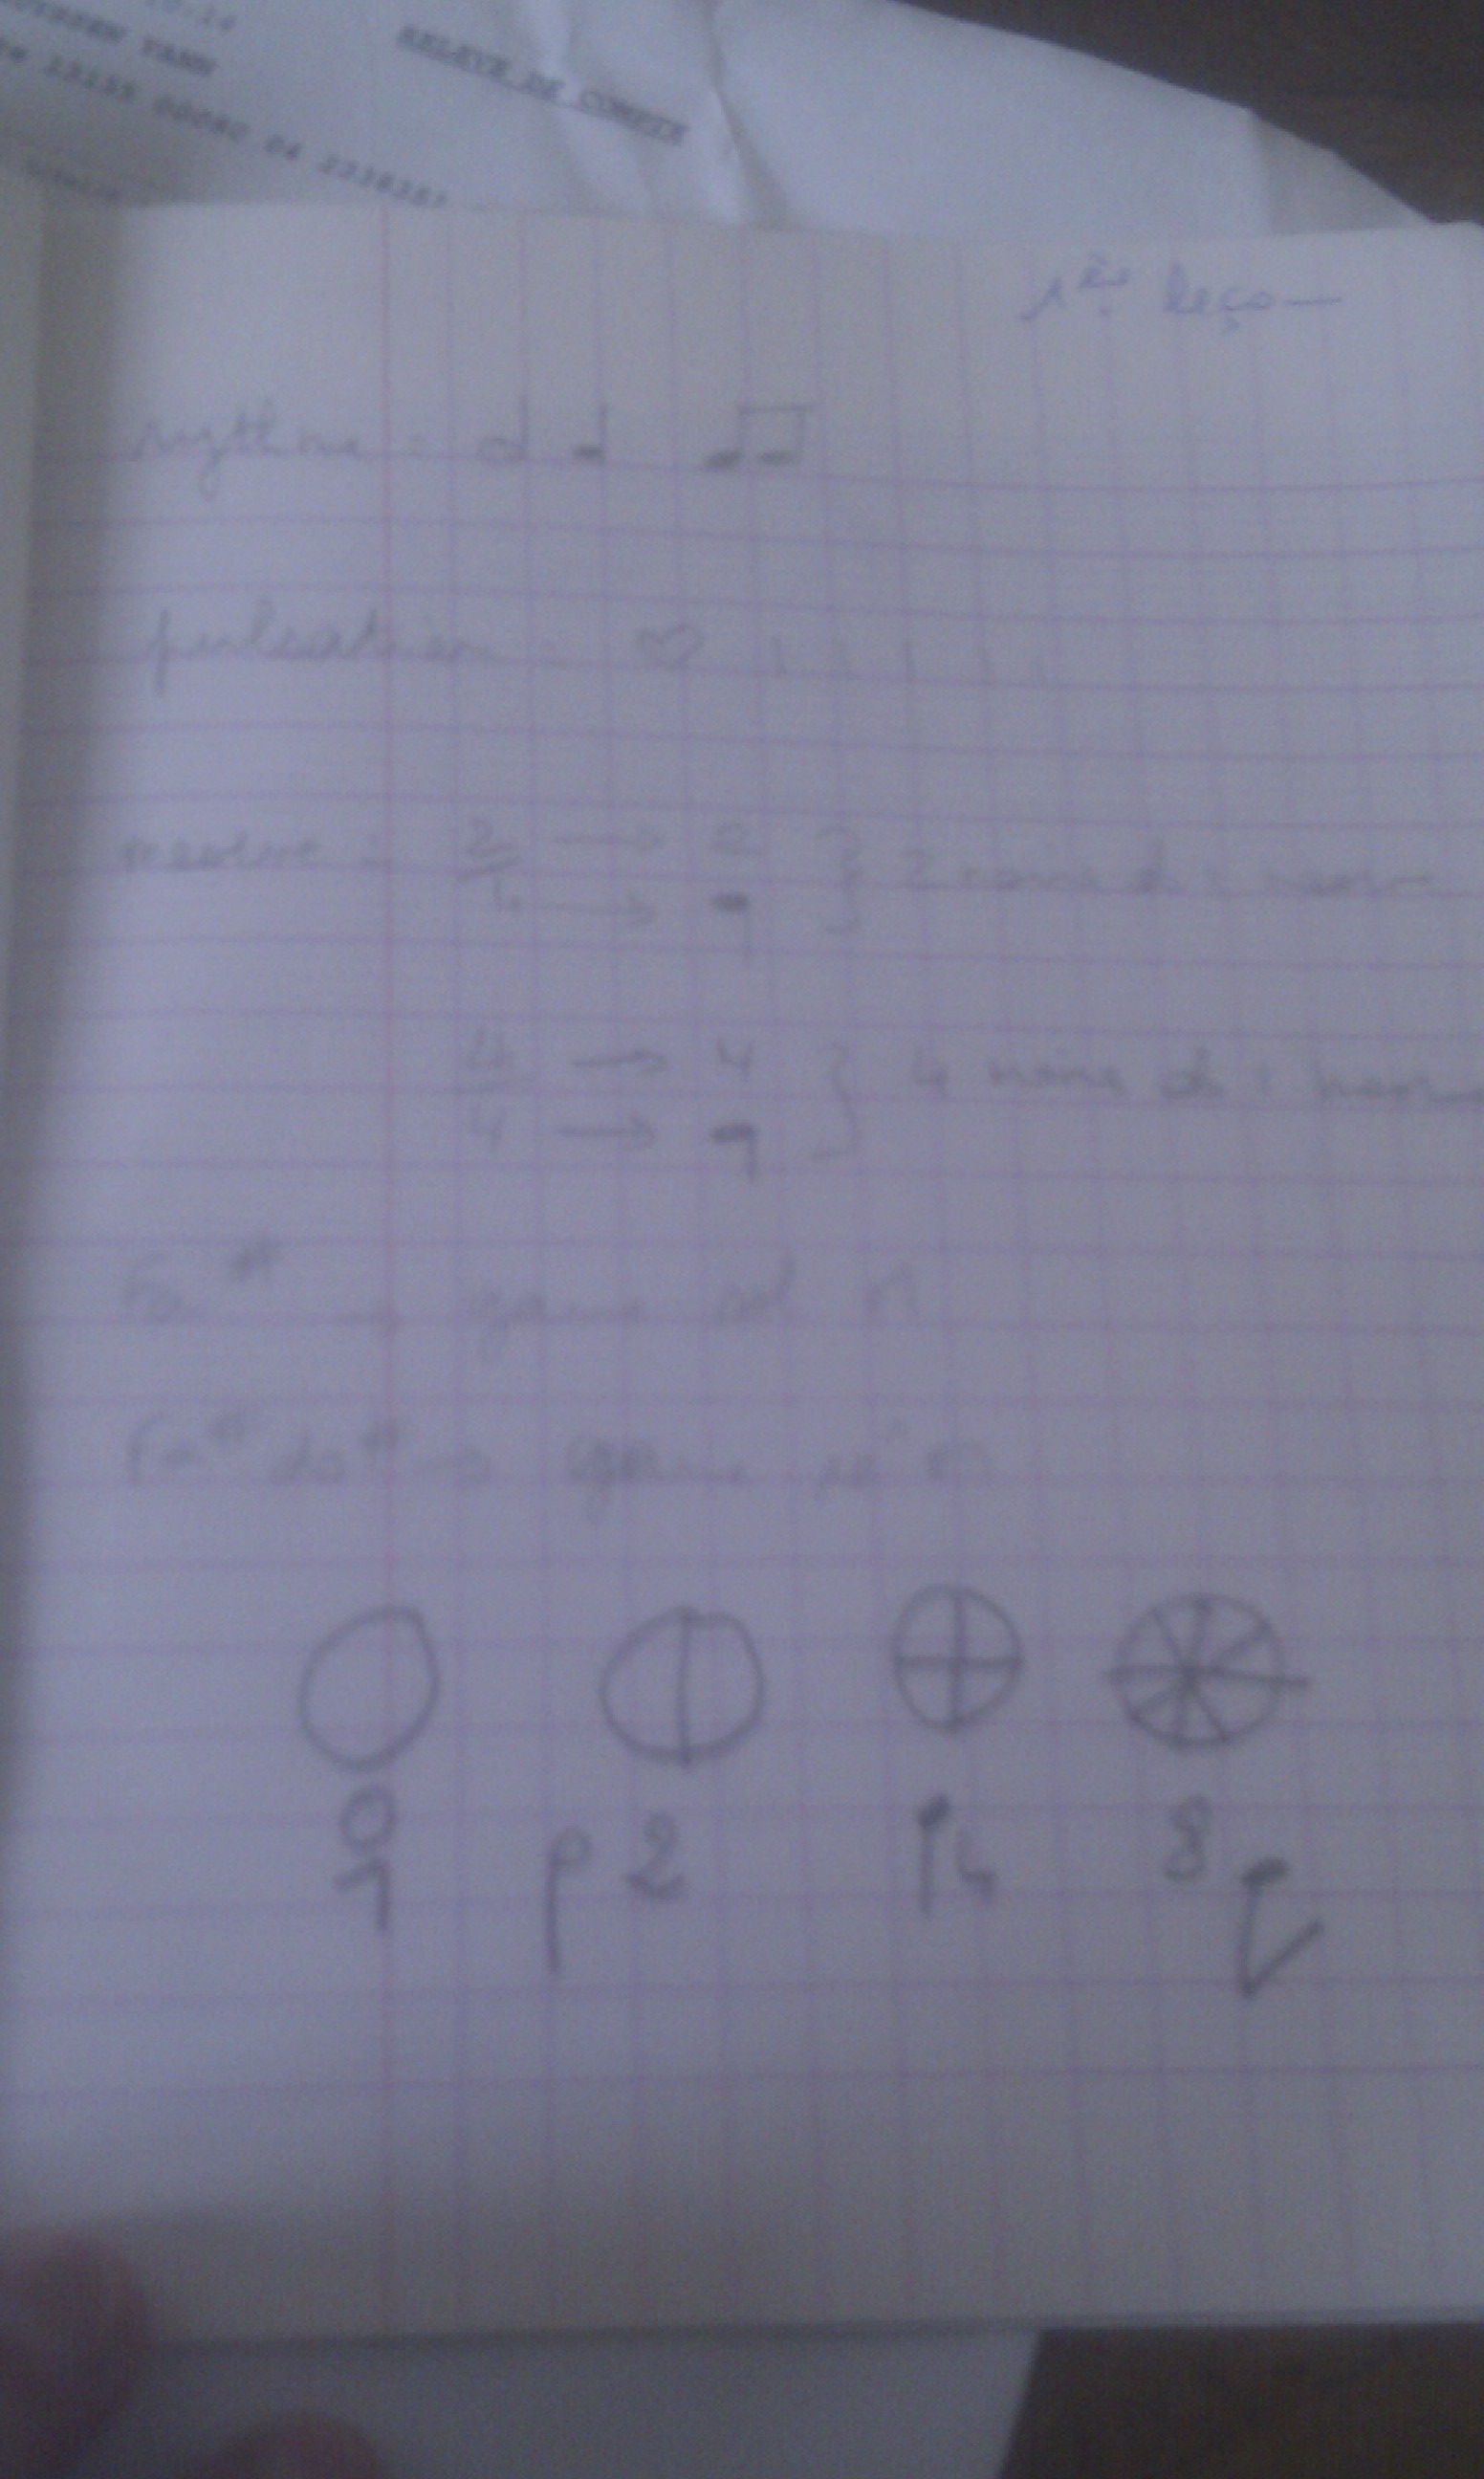 RELEVE DE COMPTE
1ère leçon
rythme =
pulsation = ♡ | | | | |
mesure = 2/4 → 2 } 2 noires ds 1 mesure
→ ♩
4/4 → 4 } 4 noires ds 1
→ ♩
Fa # → gamme sol M
Fa # do # → gamme ré M
1 2 4 8